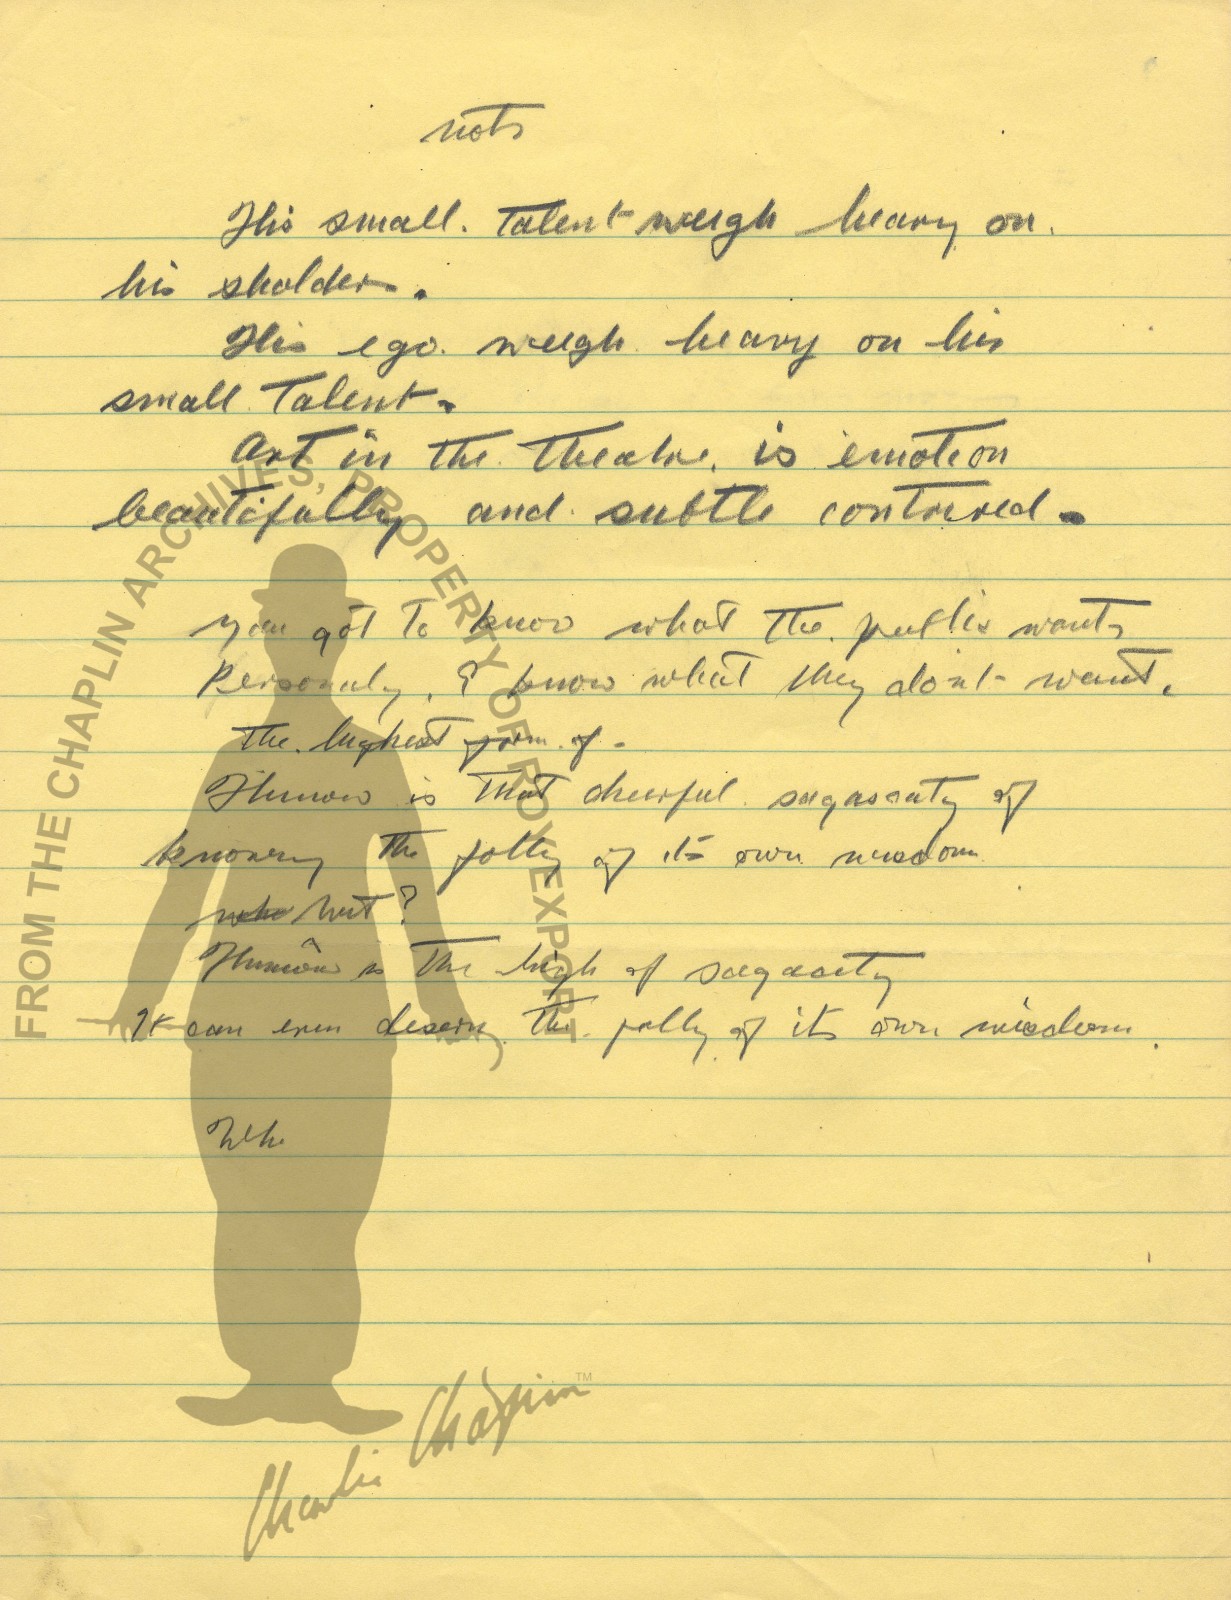 nots
His small. Talent weigh heavy on.
his sholders.
His ego. weigh heavy on his
small Talent.
Art in the Theatre, is emotion
beautifully and subtle contrived.
you got to know what the public wants
Personaly, I know what they dont want.
The highest form of -
Humor is that cheerful sagascaty of
knowing the folly of its own wisdom
who but?
Humor is the high of sagacity
It can even descern the folly of its own wisdom.
Who
FROM THE CHAPLIN ARCHIVES, PROPERTY OF ROY EXPORT
Charlie Chaplin™